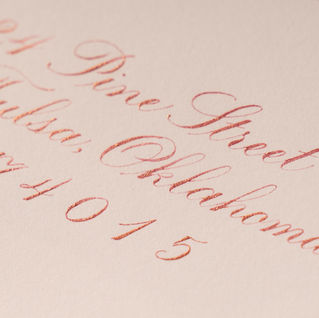 24 Pine Street
Tulsa, Oklahoma
74015